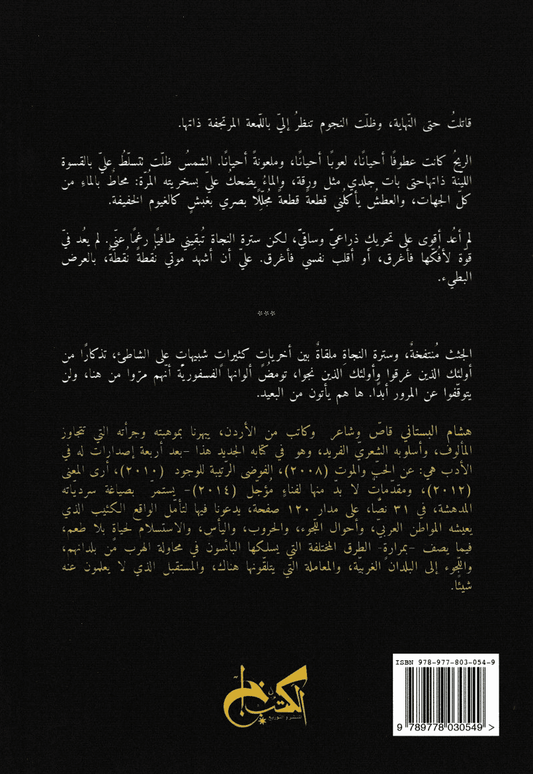 قاتلتُ حتى النّهاية، وظلّت النجوم تنظرُ إليّ باللّمعة المرتجفة ذاتها.
الريحُ كانت عطوفًا أحيانًا، لعوبًا أحيانًا، وملعونةً أحيانًا. الشمسُ ظلّت تتسلّطُ عليّ بالقسوة
الليّنة ذاتهاحتى بات جلدي مثل ورقة، والماءُ يضحكُ عليّ بسخريته المرّة: محاطٌ بالماءِ من
كلّ الجهات، والعطشُ يأكلُني قطعةً قطعةً مُجلِّلًا بصري بغَبشٍ كالغيوم الخفيفة.
لم أعُد أقوى على تحريك ذراعيّ وساقيّ، لكن سترة النجاة تُبقيني طافيًا رغمًا عنّي. لم يعُد فيّ
قوّة لأفُكّها فأغرق، أو أقلبَ نفسي فأغرق. عليّ أن أشهدَ موتي نُقطةً نُقطةً، بالعرض
البطيء.
***
الجثث مُنتفخةٌ، وسترة النجاة ملقاةٌ بين أخرياتٍ كثيراتٍ شبيهاتٍ على الشاطئ، تذكارًا من
أولئك الذين غرقوا وأولئك الذين نجوا، تومضُ ألوانها الفسفوريّة أنّهم مرّوا من هنا، ولن
يتوقّفوا عن المرور أبدًا. ها هم يأتون من البعيد.
هشام البستاني قاصّ وشاعر وكاتب من الأردن، يبهرنا بموهبته وجرأته التي تتجاوز
المألوف، وأسلوبه الشعريّ الفريد، وهو في كتابه الجديد هذا -بعد أربعة إصدارات له في
الأدب هي: عن الحبّ والموت (٢٠٠٨)، الفوضى الرّتيبة للوجود (٢٠١٠)، أرى المعنى
(٢٠١٢)، ومقدّماتٌ لا بدّ منها لفناءٍ مؤجّل (٢٠١٤)- يستمرّ بصياغة سرديّاته
المدهشة، في ٣١ نصًّا، على مدار ١٢٠ صفحة، يدعونا فيها لتأمّل الواقع الكئيب الذي
يعيشه المواطن العربيّ، وأحوال اللّجوء، والحروب، واليأس، والاستسلام لحياةٍ بلا طعم،
فيما يصف -بمرارةٍ- الطرق المختلفة التي يسلكها البائسون في محاولة الهرب من بلدانهم،
واللّجوء إلى البلدان الغربيّة، والمعاملة التي يتلقّونها هناك، والمستقبل الذي لا يعلمون عنه
شيئًا.
ISBN 978-977-803-054-9
9 789778 030549 >
الكتب خان
للنشر و التوزيع